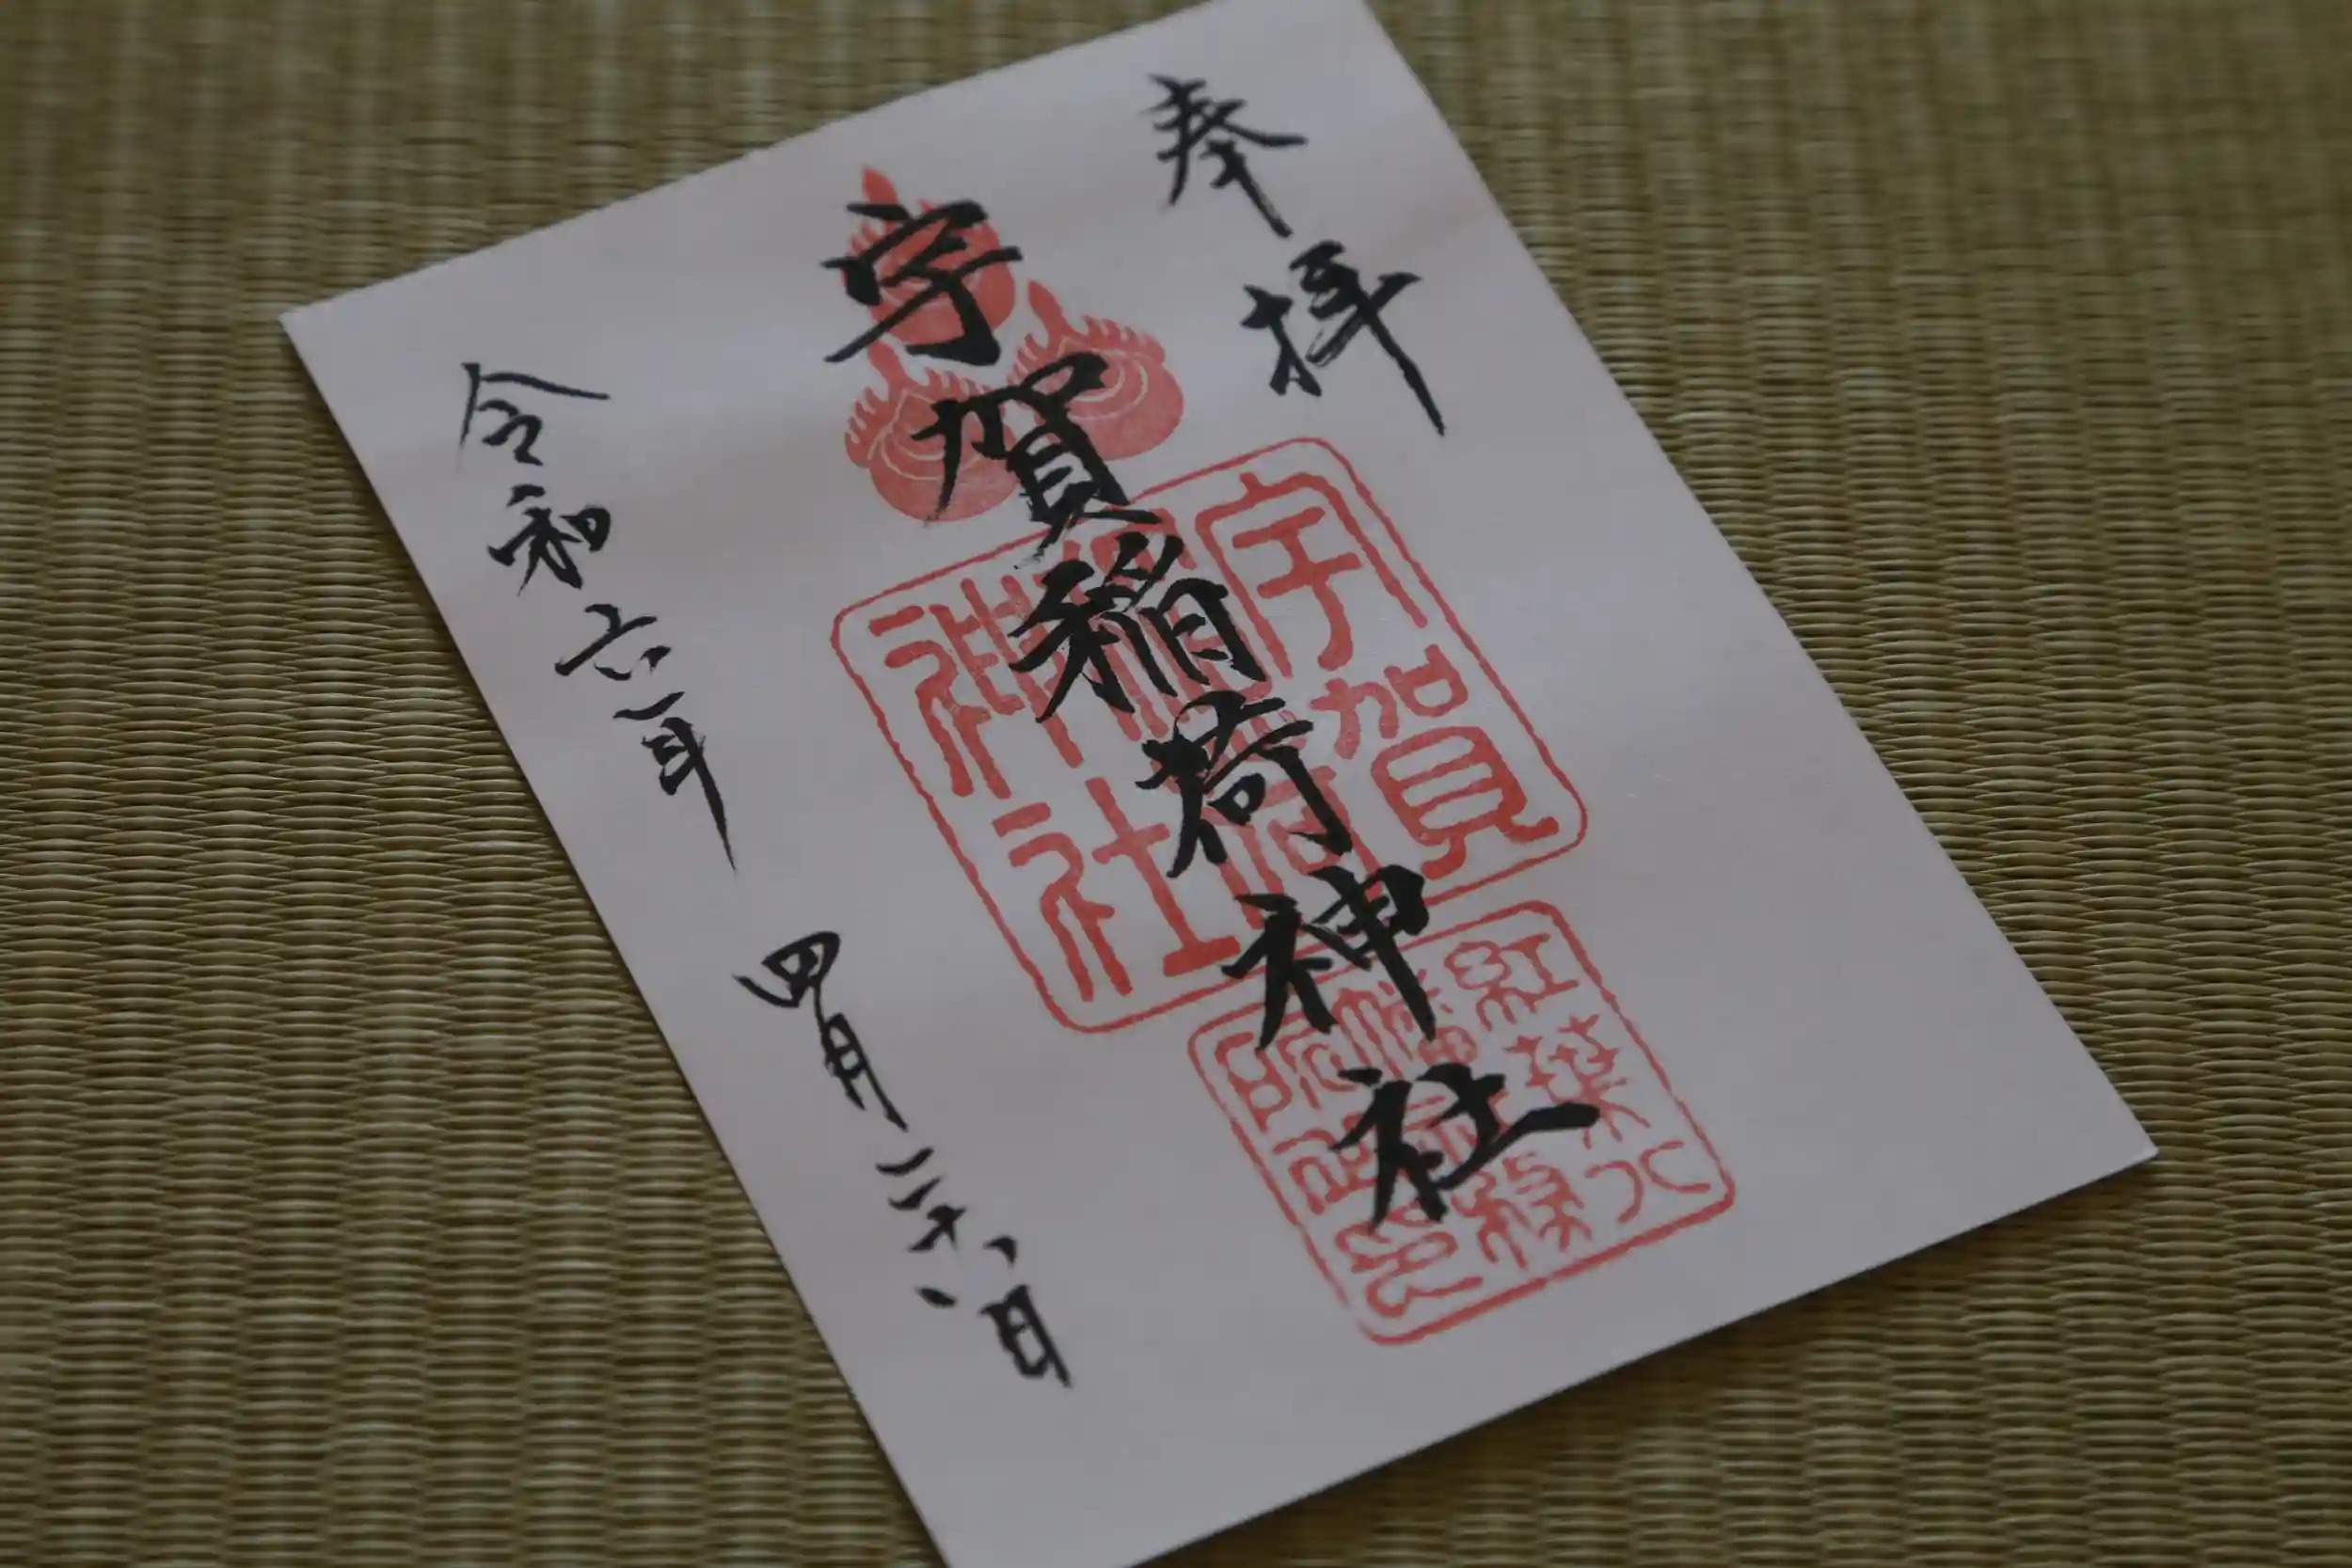 奉拝
宇賀稲荷神社
令和六年四月二十八日
宇賀
稲荷
神社
紅葉八